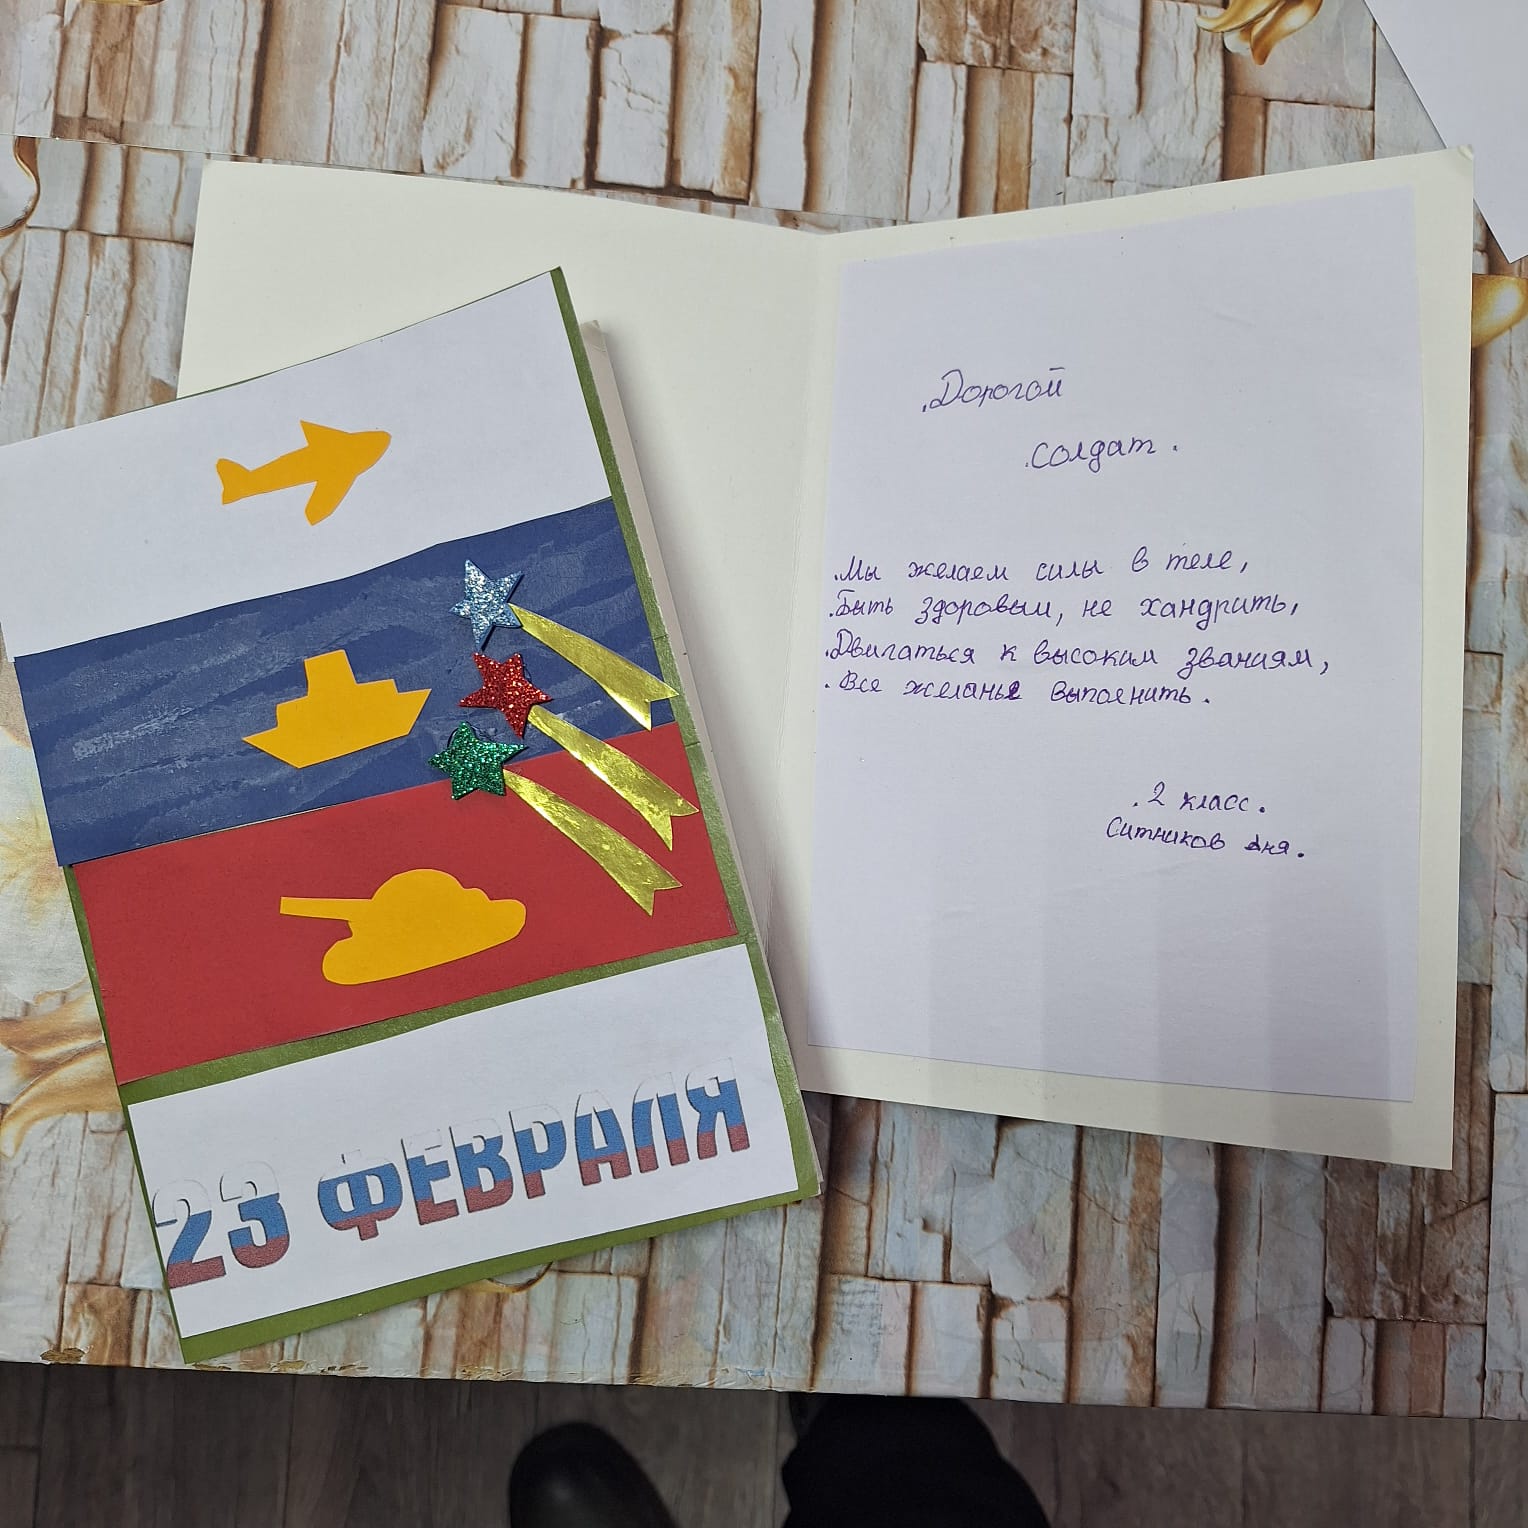 23 ФЕВРАЛЯ
.Дорогой
.солдат.
.Мы желаем силы в теле,
.Быть здоровым, не хандрить,
.Двигаться к высоким званиям,
.Все желанье выполнить.
.2 класс.
Ситников